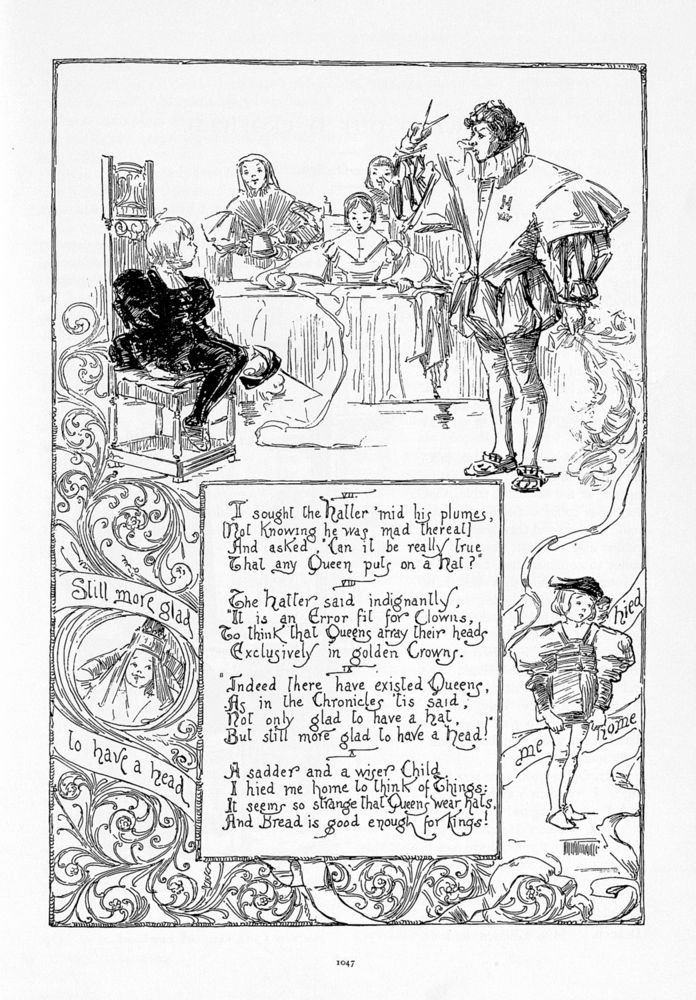 VII.
I sought the Hatter 'mid his plumes,
[Not knowing he was mad thereat]
And asked, "Can it be really true
That any Queen puts on a hat?"
VIII
The Hatter said indignantly,
"It is an Error fit for Clowns,
To think that Queens array their heads
Exclusively in golden Crowns.
IX
"Indeed there have existed Queens,
As in the Chronicles 'tis said,
Not only glad to have a hat,
But still more glad to have a head!"
X
A sadder and a wiser Child
I hied me home to think of Things:
It seems so strange that Queens wear hats,
And Bread is good enough for Kings!
Still more glad
to have a head
I
hied
me
home
M
1047